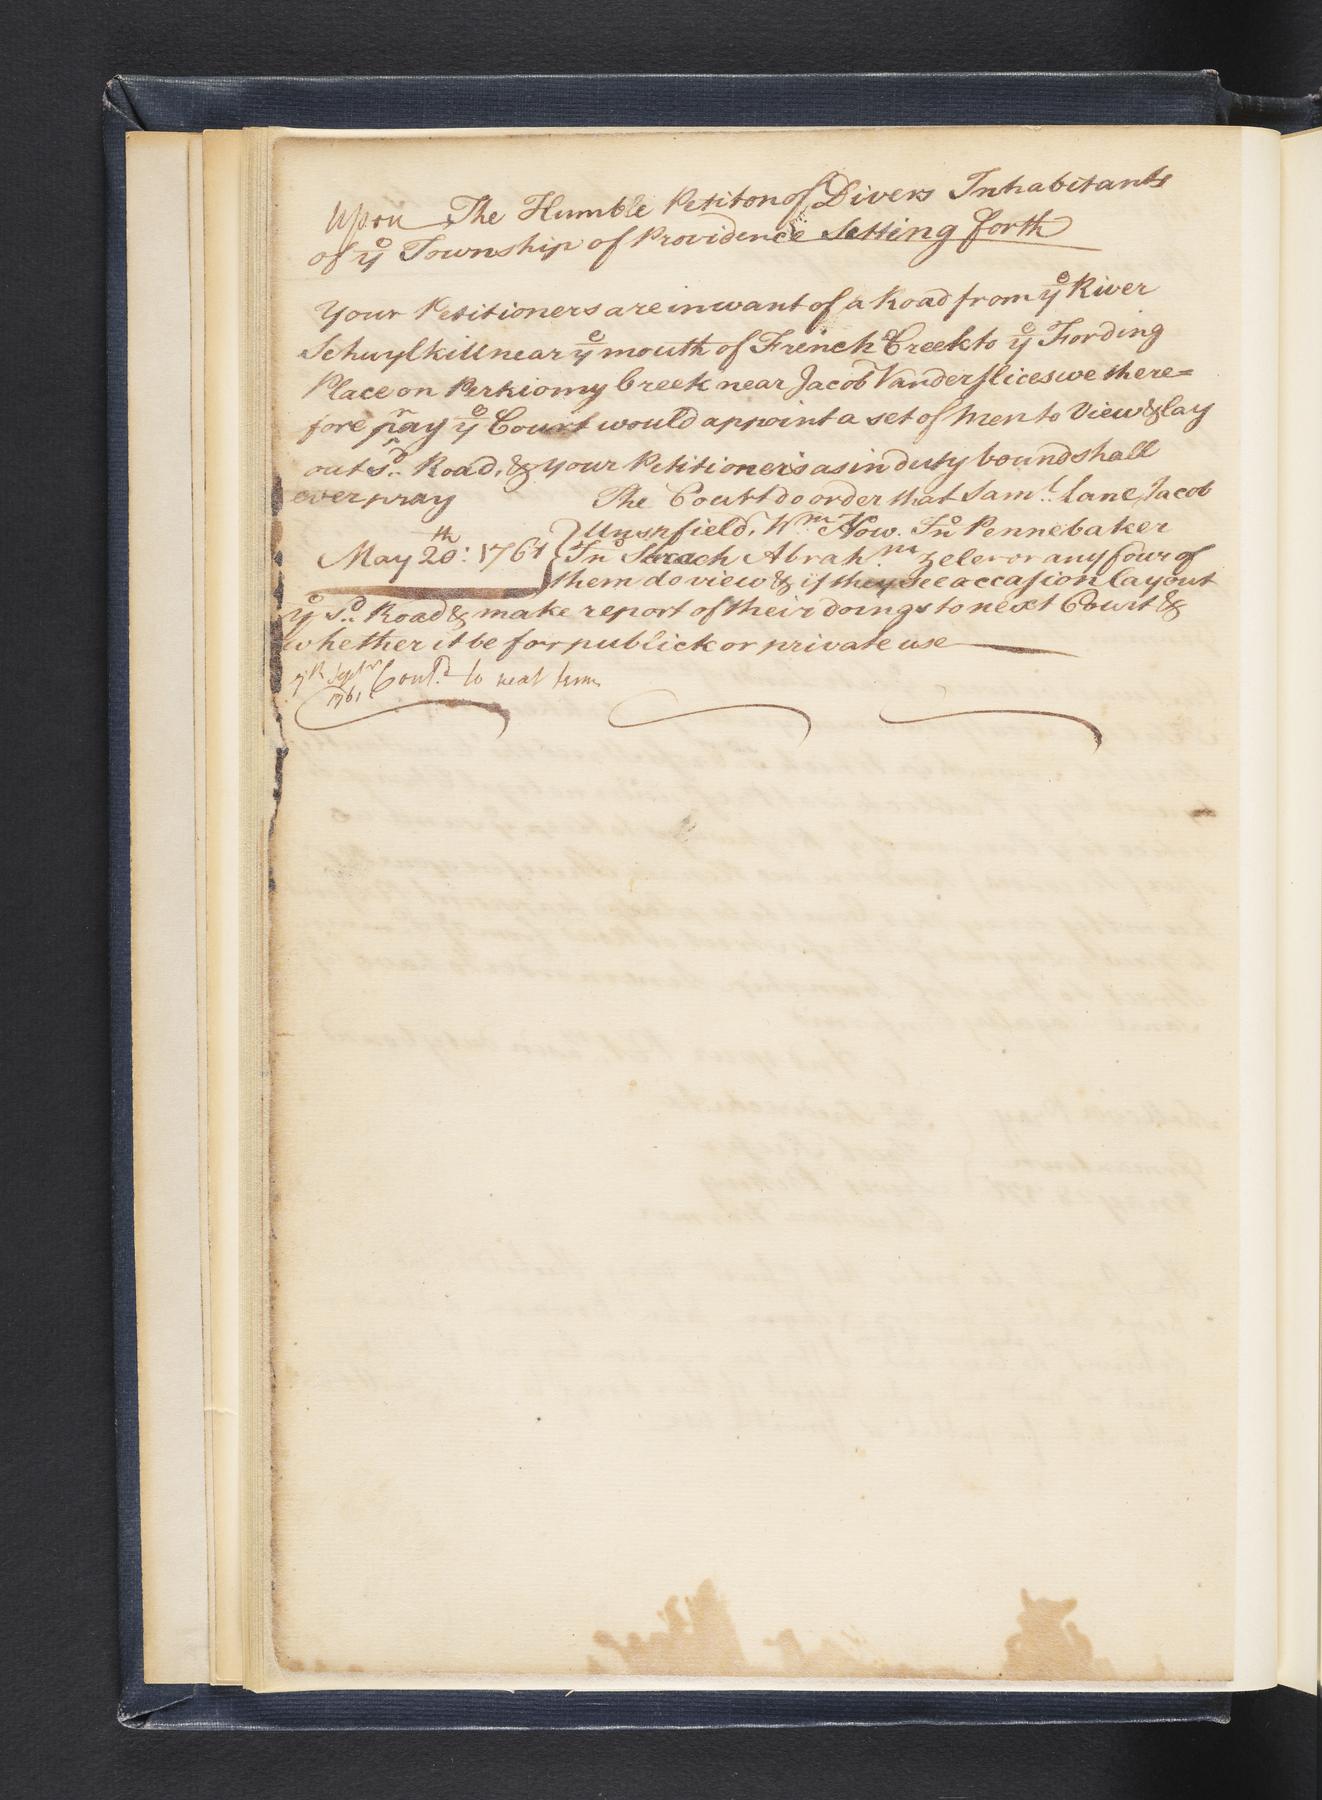 Upon The Humble Petiton of Divers Inhabitants
of yͤ Township of Providence Setting forth
Your Petitioners are in want of a Road from yͤ River
Schuylkill near yͤ mouth of French Creek to yͤ Fording
Place on Perkiomy Creek near Jacob Vanderslices we there=
fore pʳay yͤ Court would appoint a set of Men to View & lay
out sᵈ. Road, & your Petitioners as in duty bound shall
ever pray The Court do order that Samˡ. Lane, Jacob
Umsfield, Wᵐ How. Jnº Pennebaker
May 20ᵗʰ: 1761 Jnº Abrahᵐ. Zeler or any four of
them do view & if they see accasion lay out
yͤ sᵈ. Road & make report of their doings to next Court &
whether it be for publick or private use
7ᵗʰ Septʳ Contᵈ to next term
1761